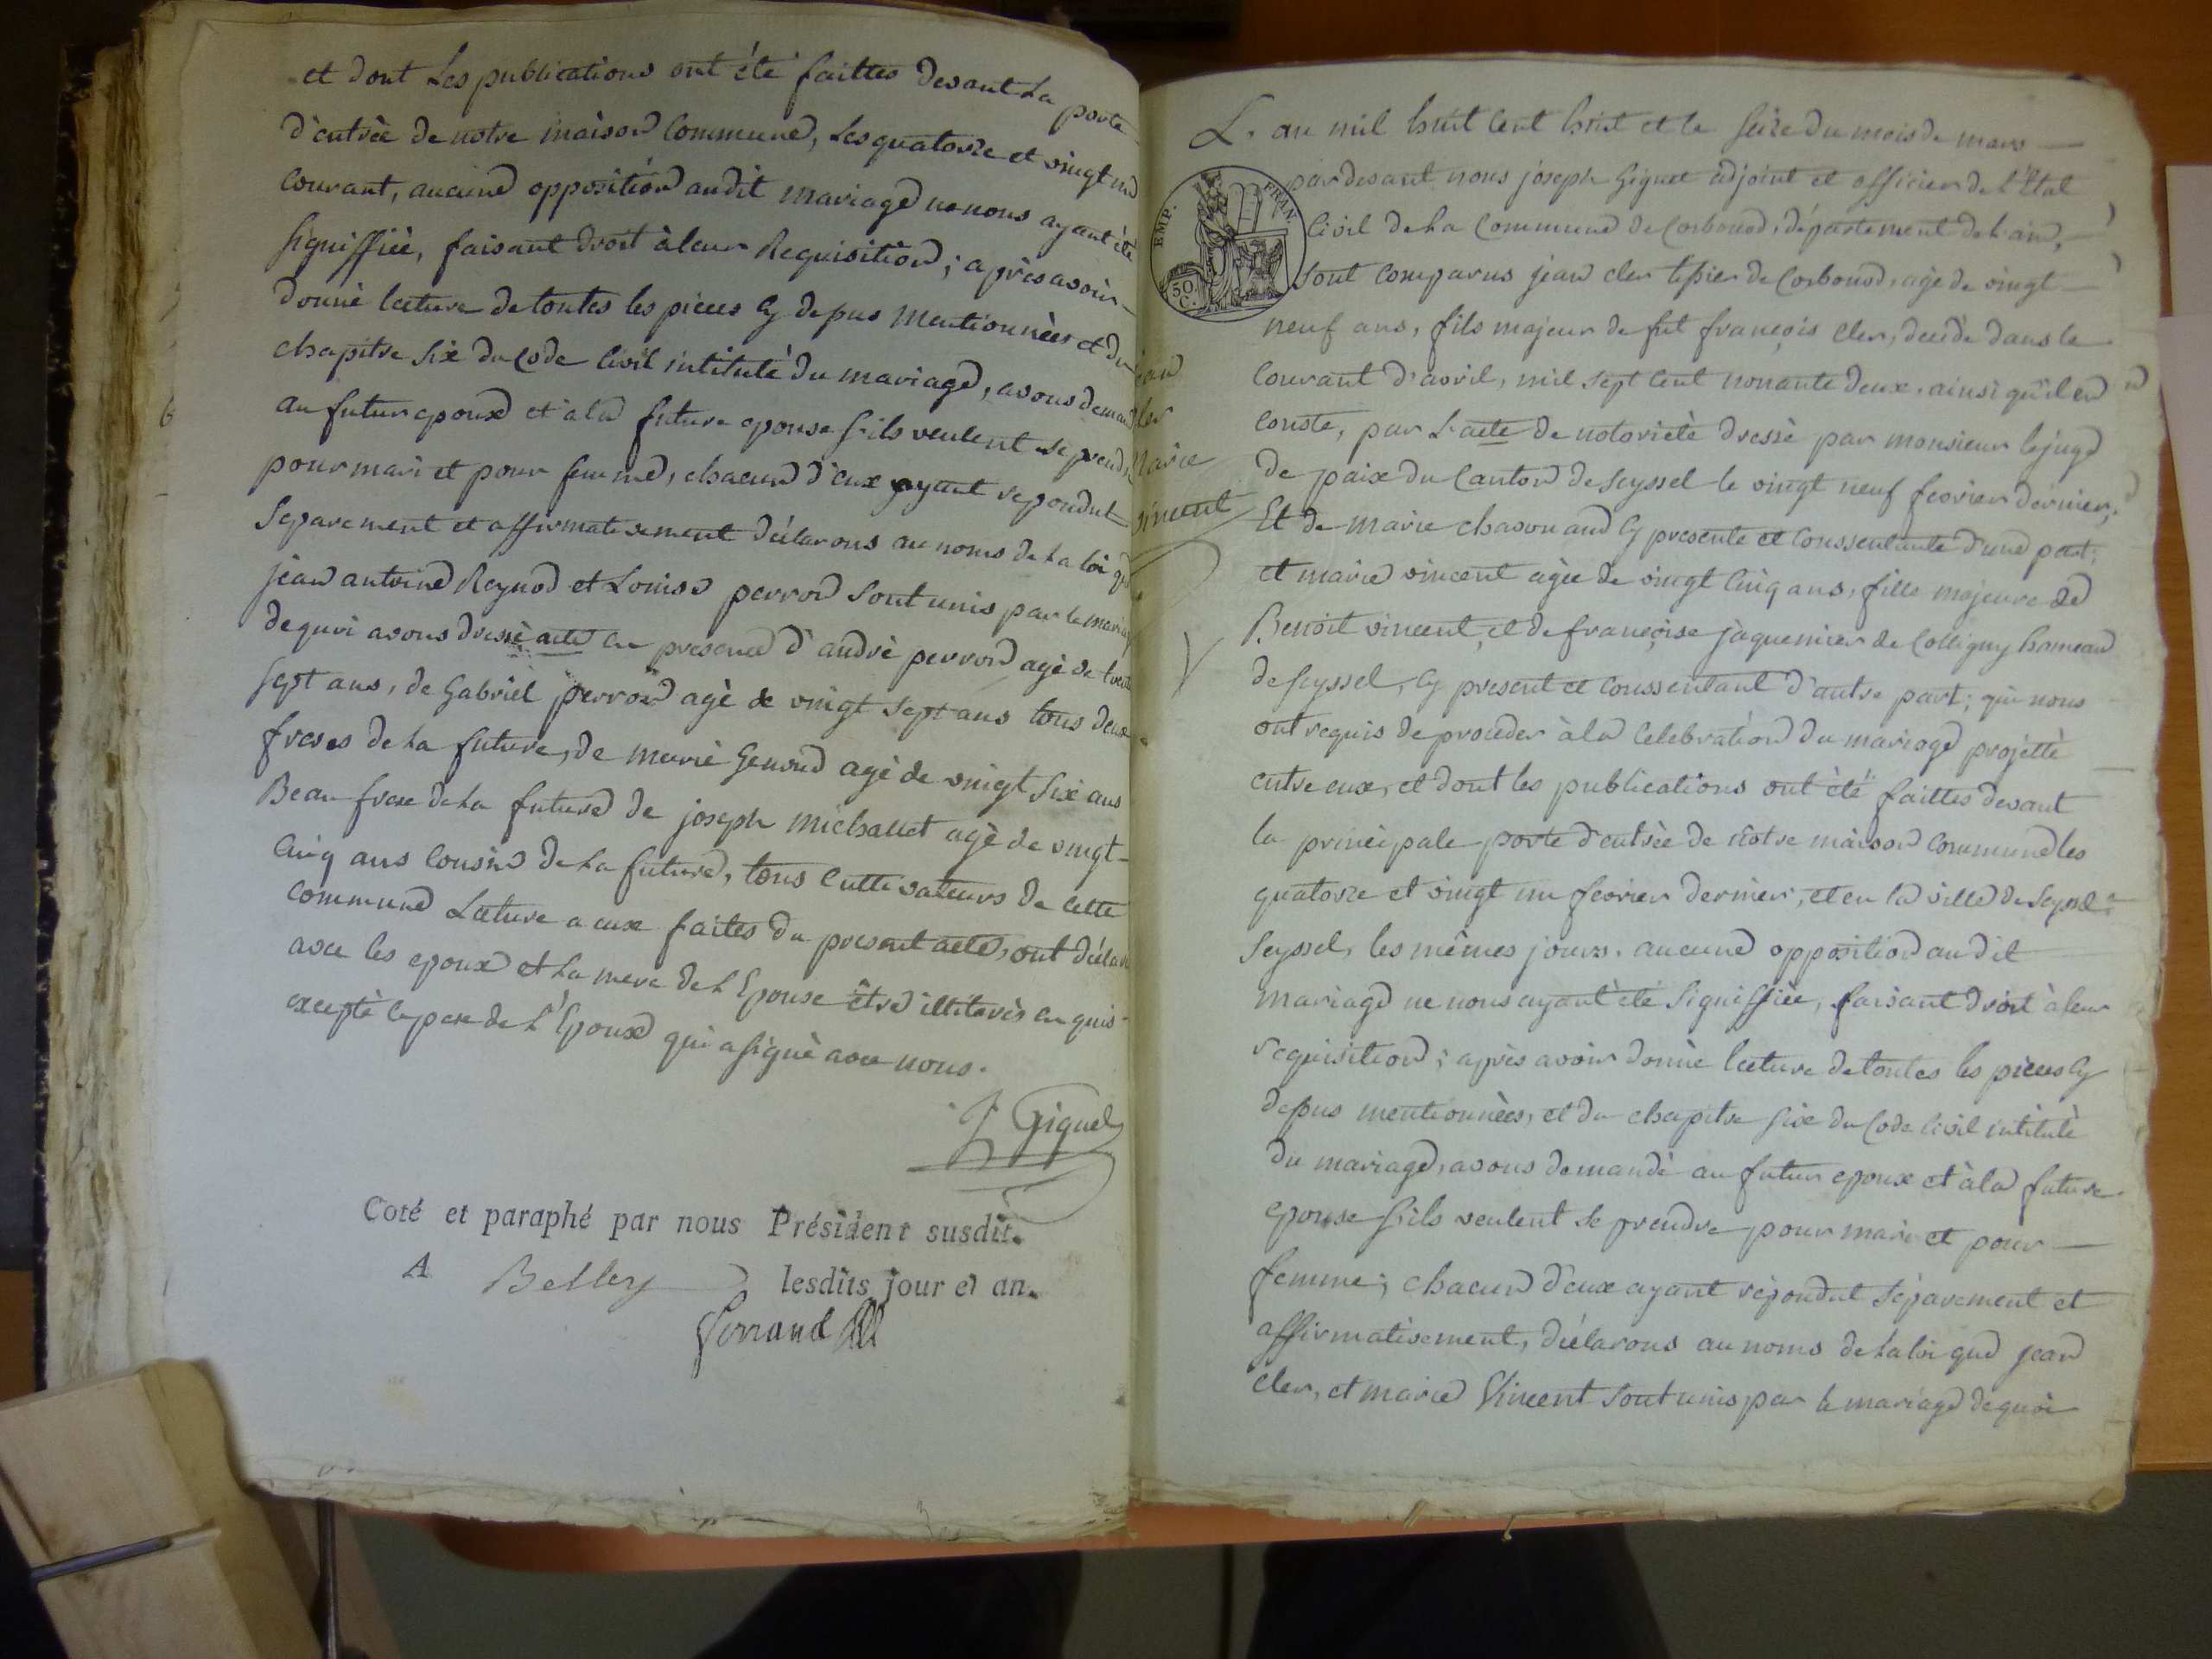 et dont Les publications ont été faittes devant La porte
d'entrée de notre maison Commune, Les quatorze et vingt un
Courant, aucune opposition audit mariage ne nous ayant été
signiffiée, faisant droit à leur Requisition; après avoir
donné lecture de toutes les pieces cy dessus mentionnées et du
chapitre six du Code Civil intitulé du mariage, avons deman
au futur epoux et à la future epouse s'ils veulent se prendre
pour mari et pour femme, chacun d'eux ayant repondut
separement et affirmativement déclarons au noms de la loi que
jean antoine Reynod et Louise perron sont unis par le mariag
de quoi avons dressé acte en presence d'andré perron agé de trente
sept ans, de Gabriel perron agé de vingt sept ans tous deux
freres de la future, de marie Genoud agé de vingt six ans
Beau frere de la future de joseph michallet agé de vingt
Cinq ans Cousin de la future, tous Cultivateurs de Cette
Commune Lecture a eux faites du present acte, ont déclaré
avec les epoux et La mere de L'Epouse être illiterés en quis
excepté le pere de L'Epoux qui a signé avec nous.
J Giguet
Coté et paraphé par nous Président susdit.
A Belley lesdits jour et an.
Ferrand
jean
cler
marie
vincent
L'an mil huit Cent huit et le seize du mois de mars
pardevant nous joseph Giguet adjoint et officier de L'Etat
Civil de La Commune de Corbonod, département de L'ain,
EMP. FRAN.
50 C.
sont Comparus jean cler tissier de Corbonod, agé de vingt
neuf ans, fils majeur de fut françois cler, decédé dans le
Courant d'avril, mil sept Cent nonante deux, ainsi qu'il en
Conste, par L'acte de notorieté dressé par monsieur le juge
de paix du Canton de seyssel le vingt neuf fevrier dernier;
Et de marie chavouand cy presente et Conssentante d'une part;
et marie vincent agée de vingt Cinq ans, fille majeure de
Benoit vincent, et de françoise jaquemier de Colligny hameau
de seyssel, cy present et Conssentant d'autre part; qui nous
ont requis de proceder à la Celebration du mariage projetté
entre eux, et dont les publications ont été faittes devant
la principale porte d'entrée de nôtre maison Commune les
quatorze et vingt un fevrier dernier, et en la ville de seyssel
seyssel, les mêmes jours. aucune opposition audit
mariage ne nous ayant été signiffiée, faisant droit à leur
requisition; après avoir donné lecture de toutes les pieces cy
dessus mentionnées, et du chapitre six du Code Civil intitulé
du mariage, avons demandé au futur epoux et à la future
epouse s'ils veulent se prendre pour mari et pour
femme; chacun d'eux ayant répondut séparement et
affirmativement, déclarons au noms de la loi que jean
cler, et marie Vincent sont unis par le mariage de quoi